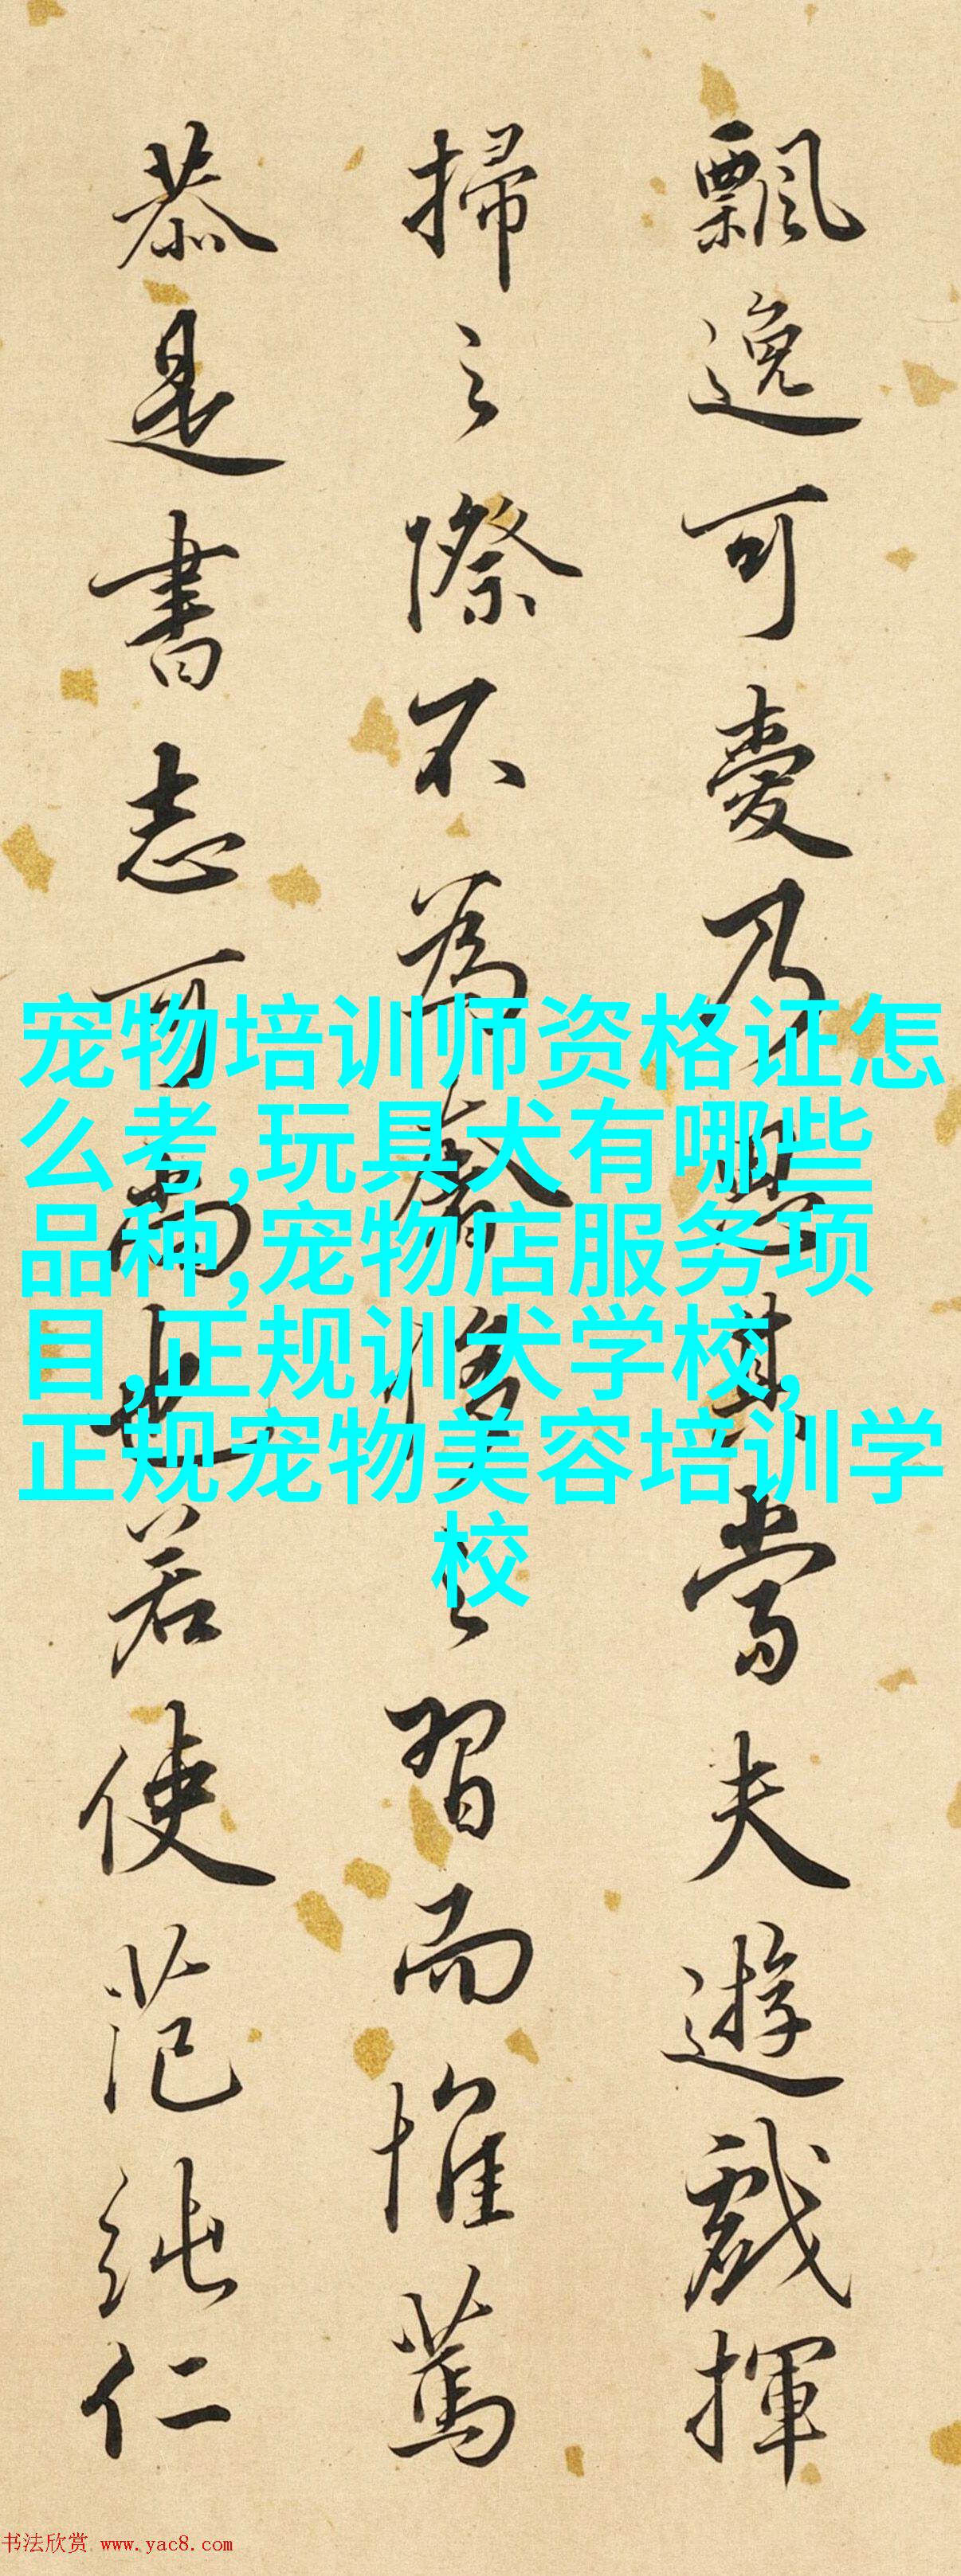 飄逸可愛乃其常夫遊戲揮
掃之際不為奢侈之習而惟篤
恭是書志可尚也若使范純仁
宠物培训师资格证怎
么考,玩具犬有哪些
品种,宠物店服务项
目,正规训犬学校,
正规宠物美容培训学
校
书法欣赏 www.yac8.com